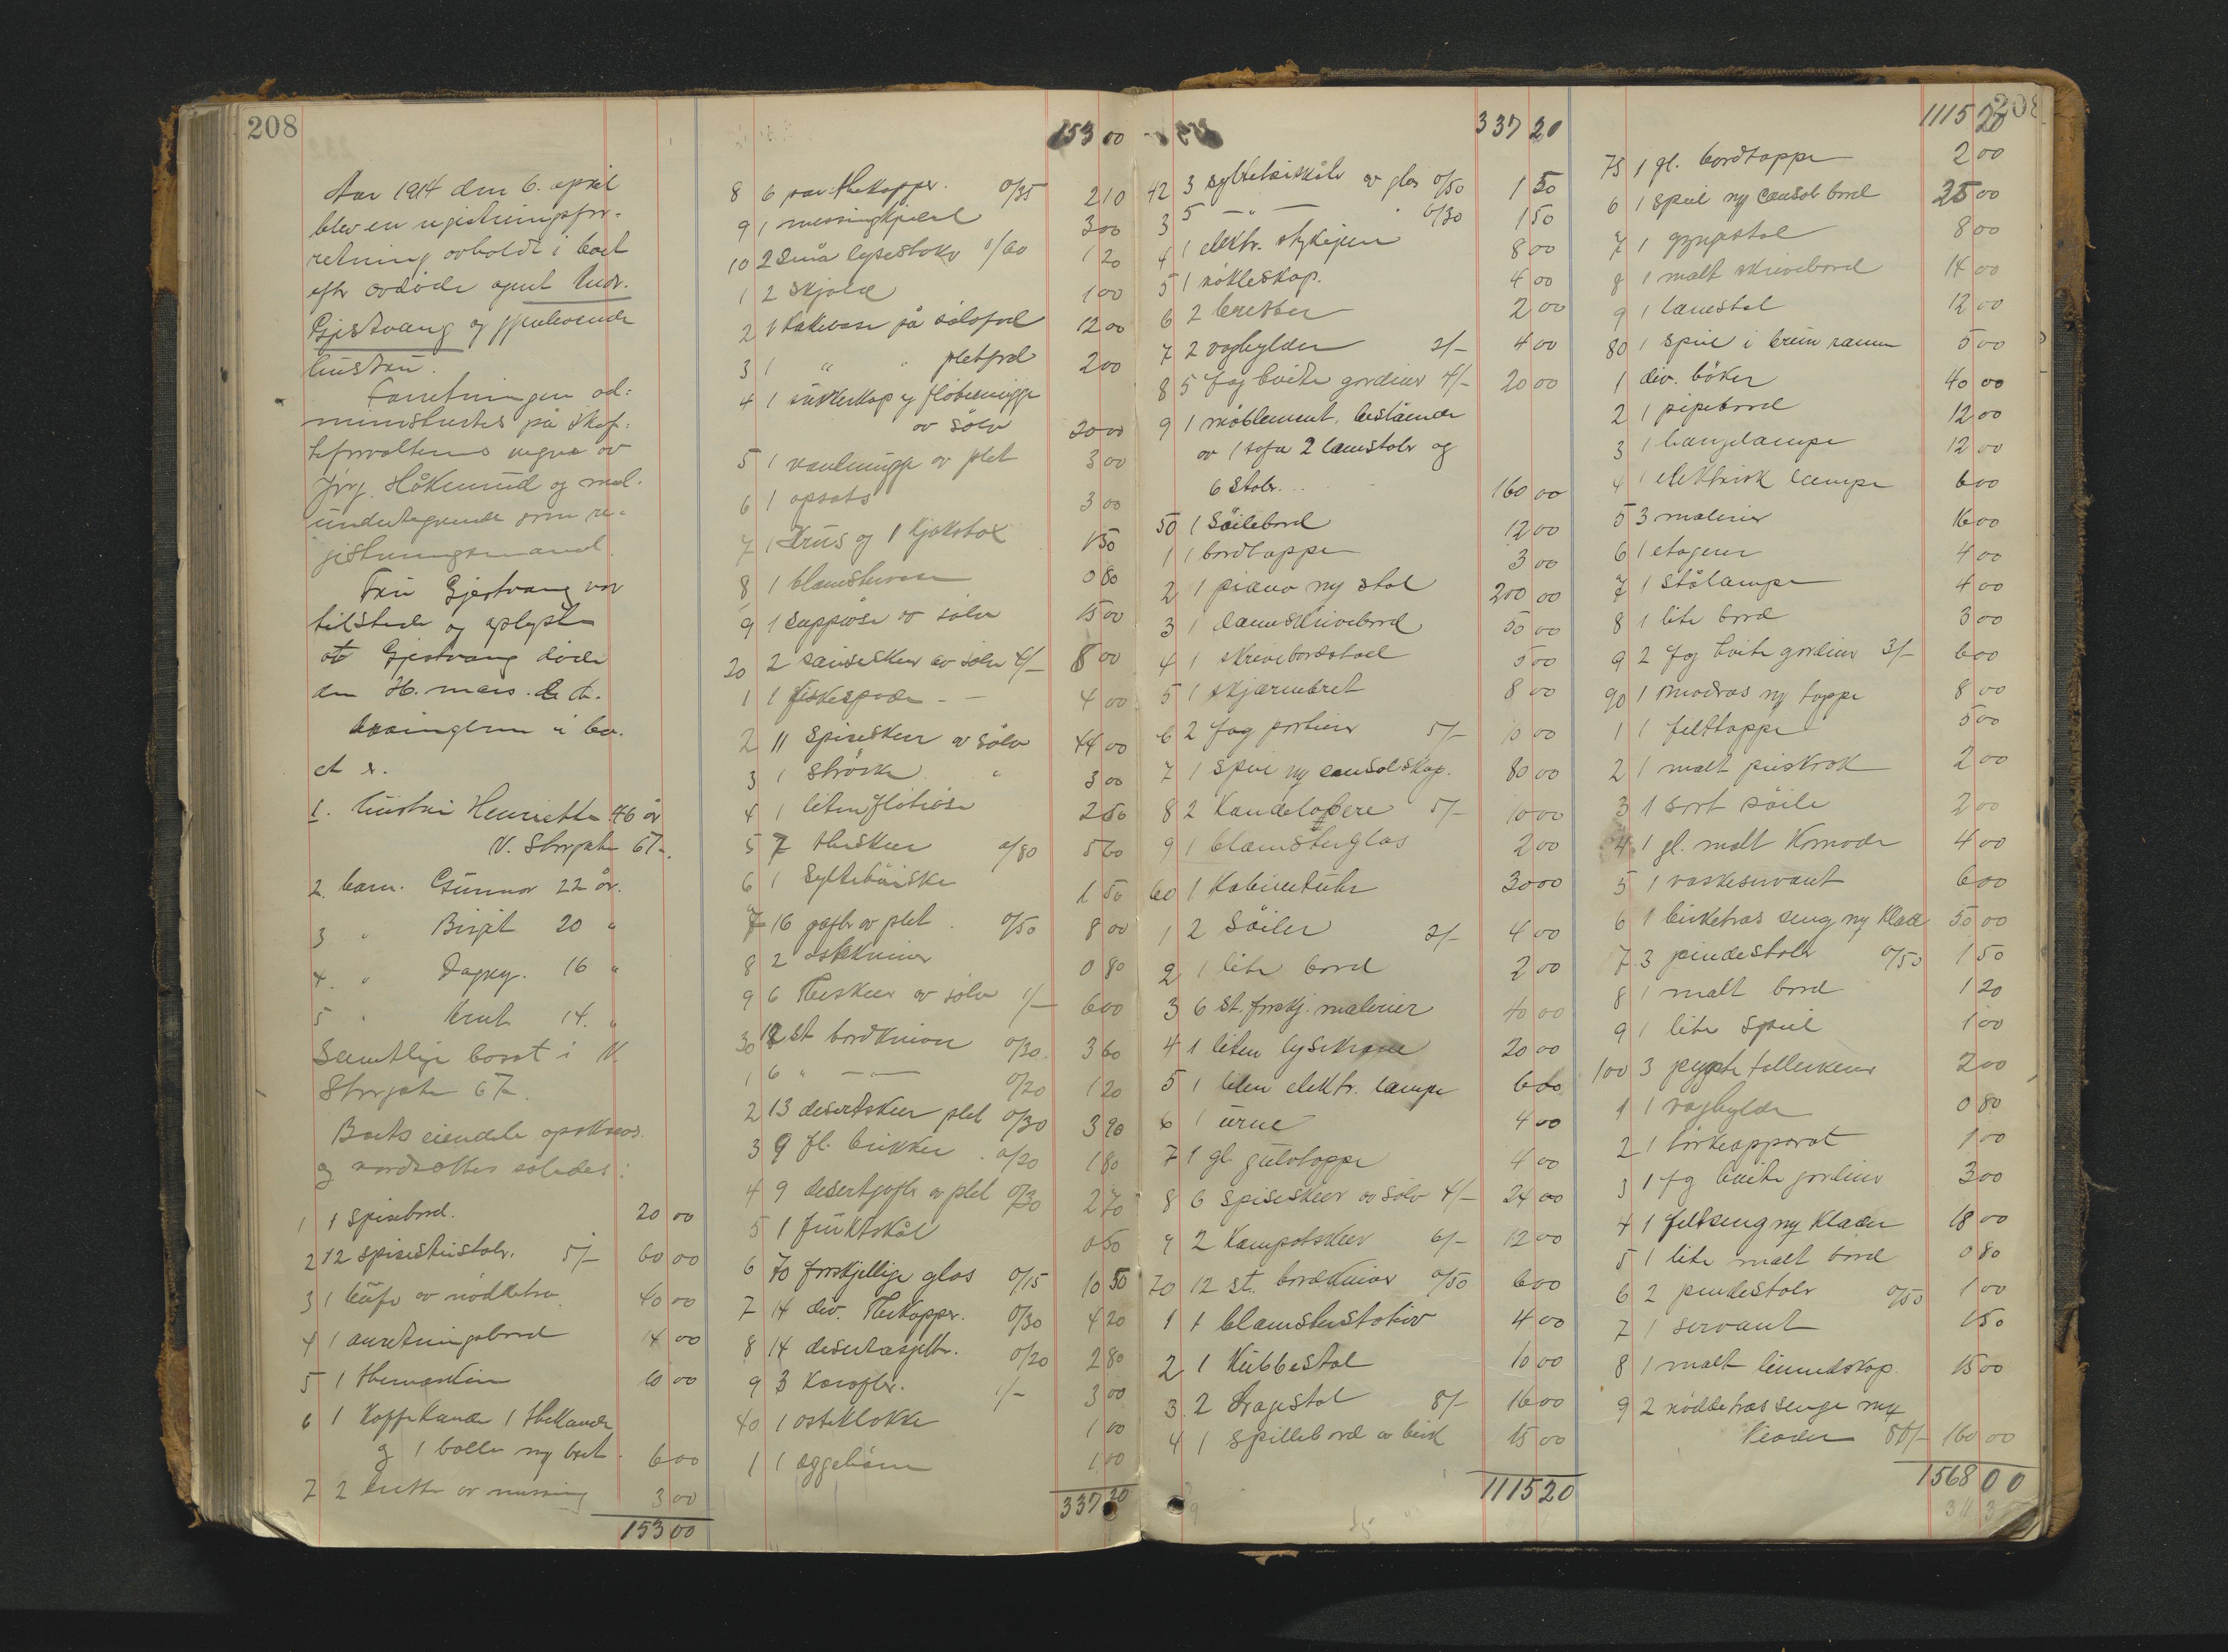 208
Aar 1914 den 6. april
blev en registreringsfor-
retning avholdt i boet
efter avdøde agent Andr.
Gjestvang og gjenlevende
hustru.
Forretningen ad-
ministrertes på skif-
teforvalterens vegne av
Jørg. Håkenrud og med
undertegnede som re-
gistreringsmand.
Fru Gjestvang var
tilstede og oplyste
at Gjestvang døde
den 16. mars d. å.
Arvingerne i bo-
et er.
1. hustru Henriette 46 år
N. Storgate 67.
2. barn. Gunnar 22 år.
3 " Birgit 20 "
4. " Dagny. 16 "
5 " Knut 14. "
Samtlige bosat i N.
Storgate 67.
Boets eiendele opskreves
og værdsattes således:
1 1 spisebord. 20 00
2 12 spisestuestoler. 5/- 60 00
3 1 buffe av nøddetræ 40 00
4 1 anretningsbord 14 00
5 1 themaskin 10 00
6 1 kaffekande 1 thekande
og 1 bolle m/ bret. 6 00
7 2 brette av messing 3 00
153 00
153 00
8 6 par thekopper. 0/35 2 10
9 1 messingkjedel 3 00
10 2 små lysestaker 0/60 1 20
1 2 skjold 1 00
2 1 kakevase på sølvfod 12 00
3 1 " " pletfod 2 00
4 1 sukkerkop og fløtemugge
av sølv 20 00
5 1 vandmugge av plet 3 00
6 1 opsats 3 00
7 1 krus og 1 kjeksbox 1 50
8 1 blomstervase 0 80
9 1 suppeøse av sølv 15 00
20 2 sauseskeer av sølv 4/- 8 00
1 1 fiskespade - 4 00
2 11 spiseskeer av sølv 44 00
3 1 strøske " 3 00
4 1 liten fløteøse 2 50
5 7 theskeer 0/80 5 60
6 1 syltetøiske 1 50
7 16 gafler av plet 0/50 8 00
8 2 ostekniver 0 80
9 6 theskeer av sølv 1/- 6 00
30 12 st bordkniver 0/30 3 60
1 6 " — " — 0/20 1 20
2 13 desertskeer plet 0/30 3 90
3 9 fl. brikker 0/20 1 80
4 9 desertgafler av plet 0/30 2 70
5 1 fruktskål 0 50
6 70 forskjellige glas 0/15 10 50
7 14 div. thekopper. 0/30 4 20
8 14 desertasjetter. 0/20 2 80
9 3 karafler. 1/- 3 00
40 1 osteklokke 1 00
1 1 æggehøne 1 00
337 20
337 20
42 3 syltetøiskåle av glas 0/50 1 50
3 5 — " — " 0/30 1 50
4 1 elektr. strykejern 8 00
5 1 nøkleskap. 4 00
6 2 bretter 2 00
7 2 vaghylder 2/- 4 00
8 5 fag hvite gardiner 4/- 20 00
9 1 møblement, bestående
av 1 sofa 2 lænestoler og
6 stoler. 160 00
50 1 søilebord 12 00
1 1 bordtæppe 3 00
2 1 piano m/ stol 200 00
3 1 dameskrivebord 50 00
4 1 skrivebordstol 5 00
5 1 skjærmbret 8 00
6 2 fag portierer 5/- 10 00
7 1 speil m/ consolskap. 80 00
8 2 kandelabere 5/- 10 00
9 1 blomsterglas 2 00
60 1 kabinetuhr 30 00
1 2 søiler 2/- 4 00
2 1 lite bord 2 00
3 6 st. forskj. malerier 40 00
4 1 liten lysekrone 20 00
5 1 liten elektr. lampe 6 00
6 1 urne 4 00
7 1 gl. gulvtæppe 4 00
8 6 spiseskeer av sølv 4/- 24 00
9 2 kompotskeer 6/- 12 00
70 12 st. bordkniver 0/50 6 00
1 1 blomsterstativ 4 00
2 1 kubbestol 10 00
3 2 dragestol 8/- 16 00
4 1 spillebord av birk 15 00
1115 20
208
1115 20
75 1 gl. bordtæppe 2 00
6 1 speil m/ consolbord 25 00
7 1 gyngestol 8 00
8 1 malt skrivebord 14 00
9 1 lænestol 12 00
80 1 speil i brun ramme 5 00
1 div. bøker 40 00
2 1 pipebord 12 00
3 1 hængelampe 12 00
4 1 elektrisk lampe 6 00
5 3 malerier 16 00
6 1 etagere 4 00
7 1 stålampe 4 00
8 1 lite bord 3 00
9 2 fag hvite gardiner 3/- 6 00
90 1 madras m/ tæppe 8 00
1 1 filttæppe 5 00
2 1 malt puskrok 2 00
3 1 sort søile 2 00
4 1 gl. malt komode 4 00
5 1 vaskeservant 6 00
6 1 birketræs seng m/ klæder 50 00
7 3 pindestoler 0/50 1 50
8 1 malt bord 1 20
9 1 lite speil 1 00
100 3 pyntetallerkener 2 00
1 1 vaghylde 0 80
2 1 tørkeapparat 1 00
3 1 fag hvite gardiner 3 00
4 1 feltseng m/ klæder 18 00
5 1 lite malt bord 0 80
6 2 pindestoler 0/50 1 00
7 1 servant 1 50
8 1 malt linnedskap. 15 00
9 2 nøddetræs senge m/
klæder 80/- 160 00
1568 00